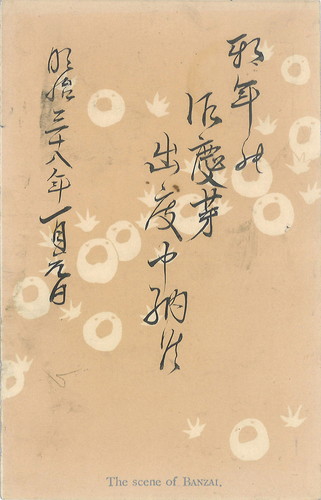 新年の
御慶芽
出度申納候
明治三十八年一月元日
The scene of BANZAI.